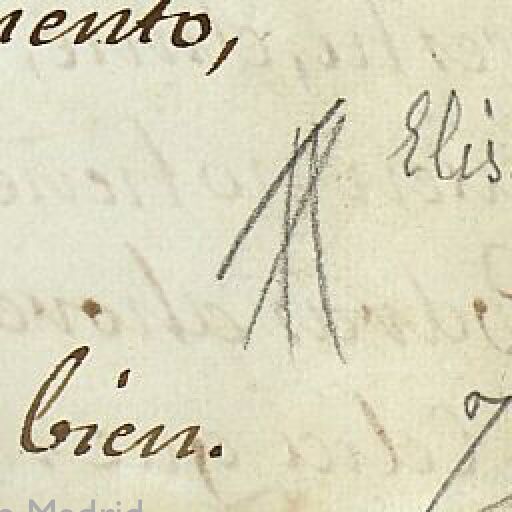 mento,
Elis.
bien.
Madrid